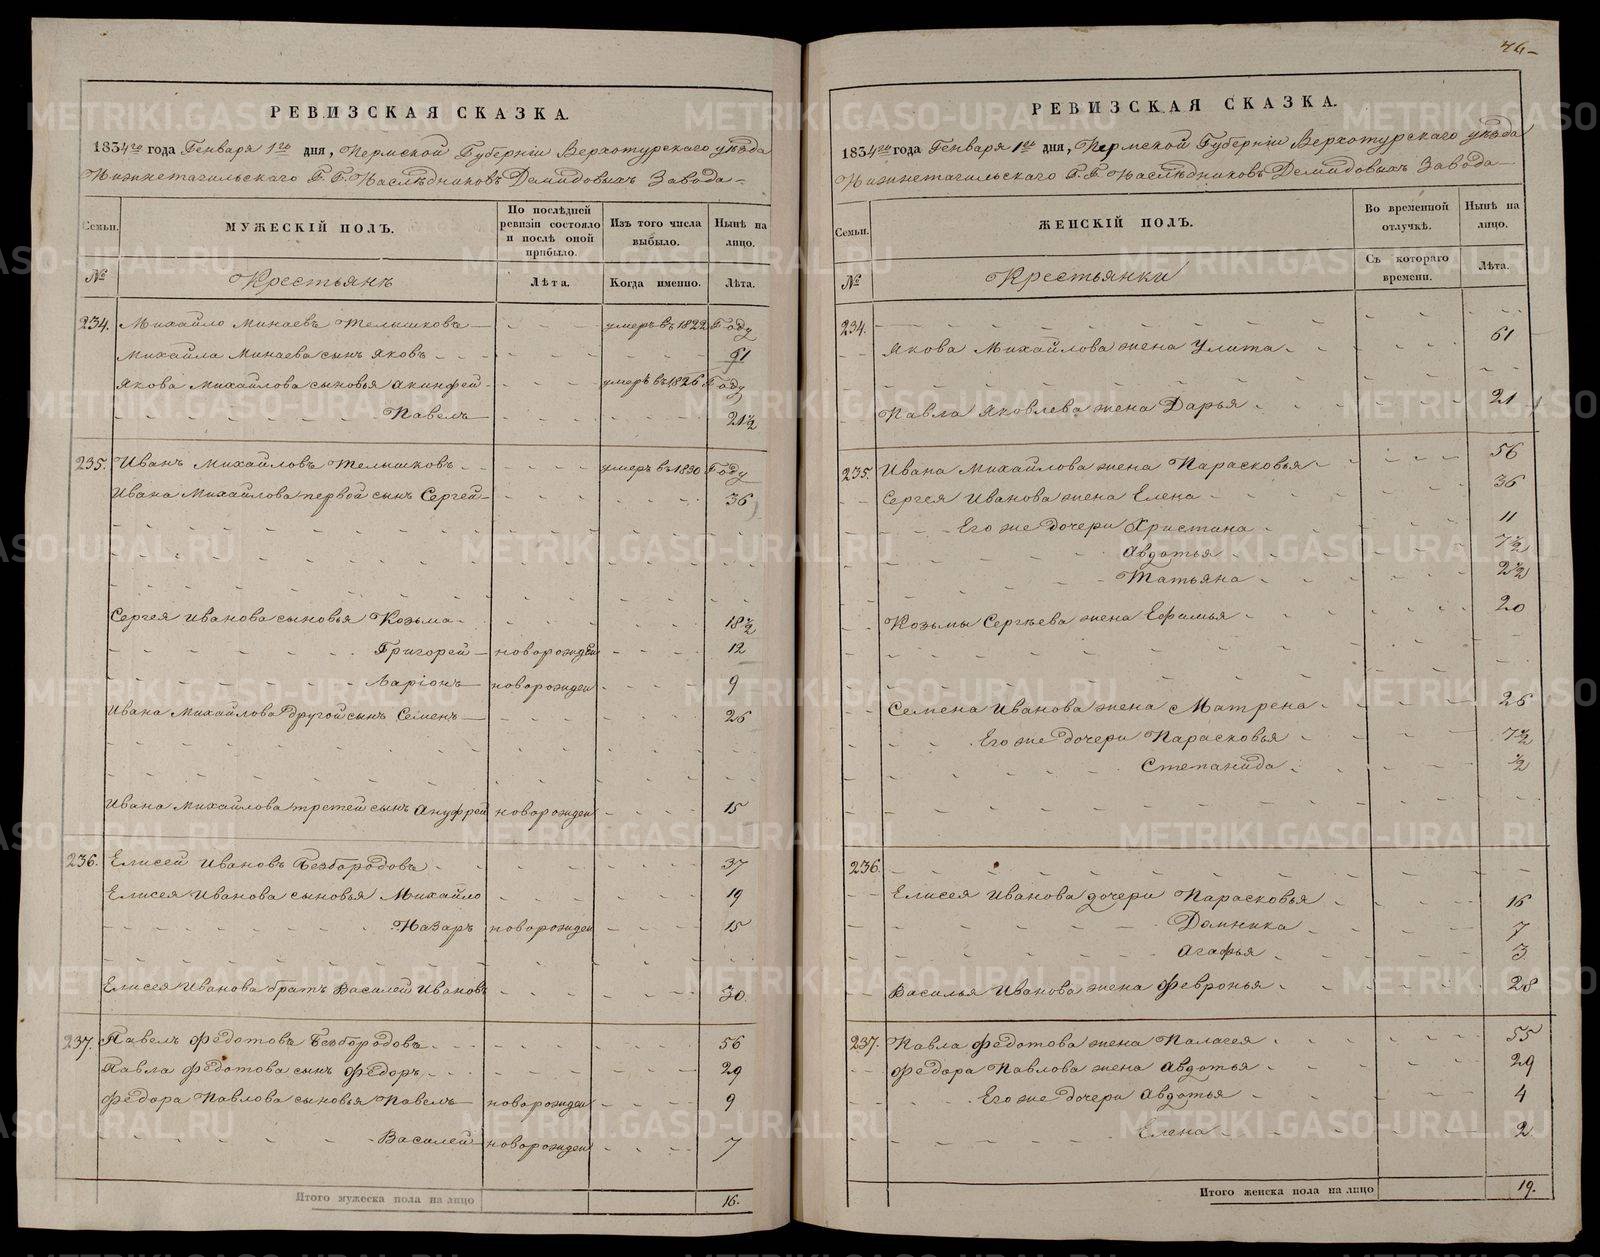 РЕВИЗСКАЯ СКАЗКА.
1834го года Генваря 1го дня, Пермской Губернiи Верхотурскаго уѣзда
Нижнетагильскаго Г. Г. Наслѣдниковъ Демидовыхъ Завода
Семьи. МУЖЕСКIЙ ПОЛЪ. По послѣдней ревизiи состояло и послѣ оной прибыло. Изъ того числа выбыло. Нынѣ на лицо.
№ Крестьянъ Лѣта. Когда именно. Лѣта.
234. Михайло Минаевъ Телышковъ умеръ въ 1822 Году
Михайла Минаева сынъ Яковъ 61
Якова Михайлова сыновья Акинфей умеръ въ 1826 Году
Павелъ 21½
235. Иванъ Михайловъ Телышковъ умеръ въ 1830 Году
Ивана Михайлова первой сынъ Сергей 36
Сергея Иванова сыновья Козьма 18½
Григорей новорожден 12
Ларiонъ новорожден 9
Ивана Михайлова другой сынъ Семенъ 26
Ивана Михайлова третей сынъ Ануфрей новорожден 15
236. Елисей Ивановъ Безбородовъ 37
Елисея Иванова сыновья Михайло 19
Назаръ новорожден 15
Елисея Иванова братъ Василей Ивановъ 30.
237. Павелъ Федотовъ Безбородовъ 56
Павла Федотова сынъ Федоръ 29
Федора Павлова сыновья Павелъ новорожден 9
Василей новорожден 7
Итого мужеска пола на лицо 16.
76
РЕВИЗСКАЯ СКАЗКА.
1834го года Генваря 1го дня, Пермской Губернiи Верхотурскаго уѣзда
Нижнетагильскаго Г. Г. Наслѣдниковъ Демидовыхъ Завода
Семьи. ЖЕНСКIЙ ПОЛЪ. Во временной отлучкѣ. Нынѣ на лицо.
№ Крестьянки Съ котораго времени. Лѣта.
234.
Якова Михайлова жена Улита 61
Павла Яковлева жена Дарья 21
235. Ивана Михайлова жена Парасковья 56
Сергея Иванова жена Елена 36
Его же дочери Христина 11
Авдотья 7½
Татьяна 2½
Козьмы Сергѣева жена Ефимья 20
Семена Иванова жена Матрена 26
Его же дочери Парасковья 7½
Степанида ½
236.
Елисея Иванова дочери Парасковья 16
Домника 7
Агафья 3
Василья Иванова жена Февронья 28
237. Павла Федотова жена Палагея 55
Федора Павлова жена Авдотья 29
Его же дочери Авдотья 4
Елена 2
Итого женска пола на лицо 19.
METRIKI.GASO-URAL.RU